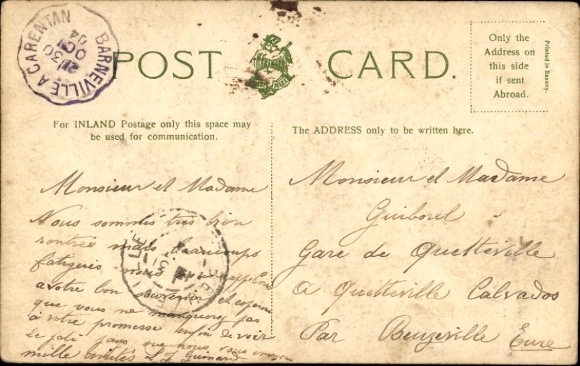 BARNEVILLE A CARENTAN
30
OCT
14
POST CARD.
Only the
Address on
this side
if sent
Abroad.
Printed in Saxony.
For INLAND Postage only this space may
be used for communication.
The ADDRESS only to be written here.
Monsieur et Madame
Nous sommes très bien
rentrés mais beaucoup
fatigués nous
a votre bon souvenir et
que vous ne manquerez pas
à votre promesse de voir
le joli que nous vous
mille L J Guinard
Monsieur et Madame
Guiborel
Gare de Quetteville
a Quetteville Calvados
Par Beuzeville Eure